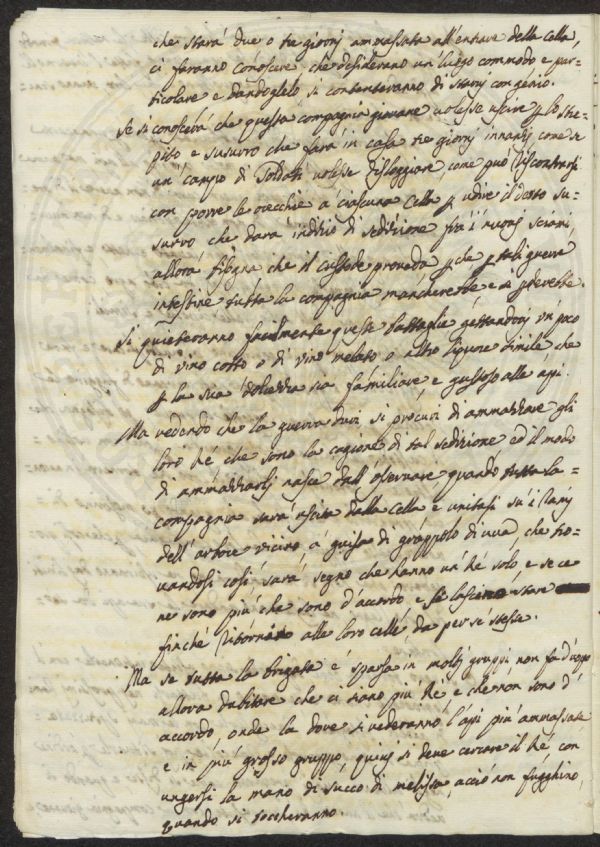 che starà due o tre giorni ammassata all'entrare della Cella,
ci faranno conoscere che desiderano un luogo commodo e par=
ticolare e dandoglelo si contenteranno di starvi con genio.
Se si conoscerà che questa compagnia giovane volesse uscire p lo stre=
pito e susurro che farà in casa tre giorni innanzi come se
un campo di Soldati volesse disloggiare, come può riscontrarsi
con porre le orecchie a ciascuna Cella p udire il detto su=
surro che darà indizio di sedizione frà i nuovi sciami,
allora bisogna che il custode proveda p che p tali guerre
intestine tutta la compagnia mancherebbe e si pderebbe.
Si quieteranno facilmente queste battaglie gettandovi un poco
di vino cotto o di vino melato o altro liquore simile che
p la sua dolcezza sia familiare e gustoso alle api.
Ma vedendo che la guerra duri si procuri di ammazzare gli
loro Ré, che sono la cagione di tal sedizione ed il modo
di ammazzarli nasce dall'osservare quando tutta la=
compagnia sarà uscita dalla Cella e unitasi sù i Rami
dell'arbore vicino, a guisa di grappolo di uva, che tro=
vandosi così sarà segno che hanno un Ré solo, e se ce
ne sono più che sono d'accordo, e si lascino stare
finché ritornino alla loro celle da per sé stesse.
Ma se tutta la brigata è sparsa in molti gruppi, non fa d'uopo
allora dubitare che ci siano più Ré e che non sono d'
accordo, onde la dove si vederanno l'api più ammassate
e in più grosso gruppo, quivi si deve cercare il Ré con
ungersi la mano di succo di melissa, acciò non fugghino,
quando si toccheranno.